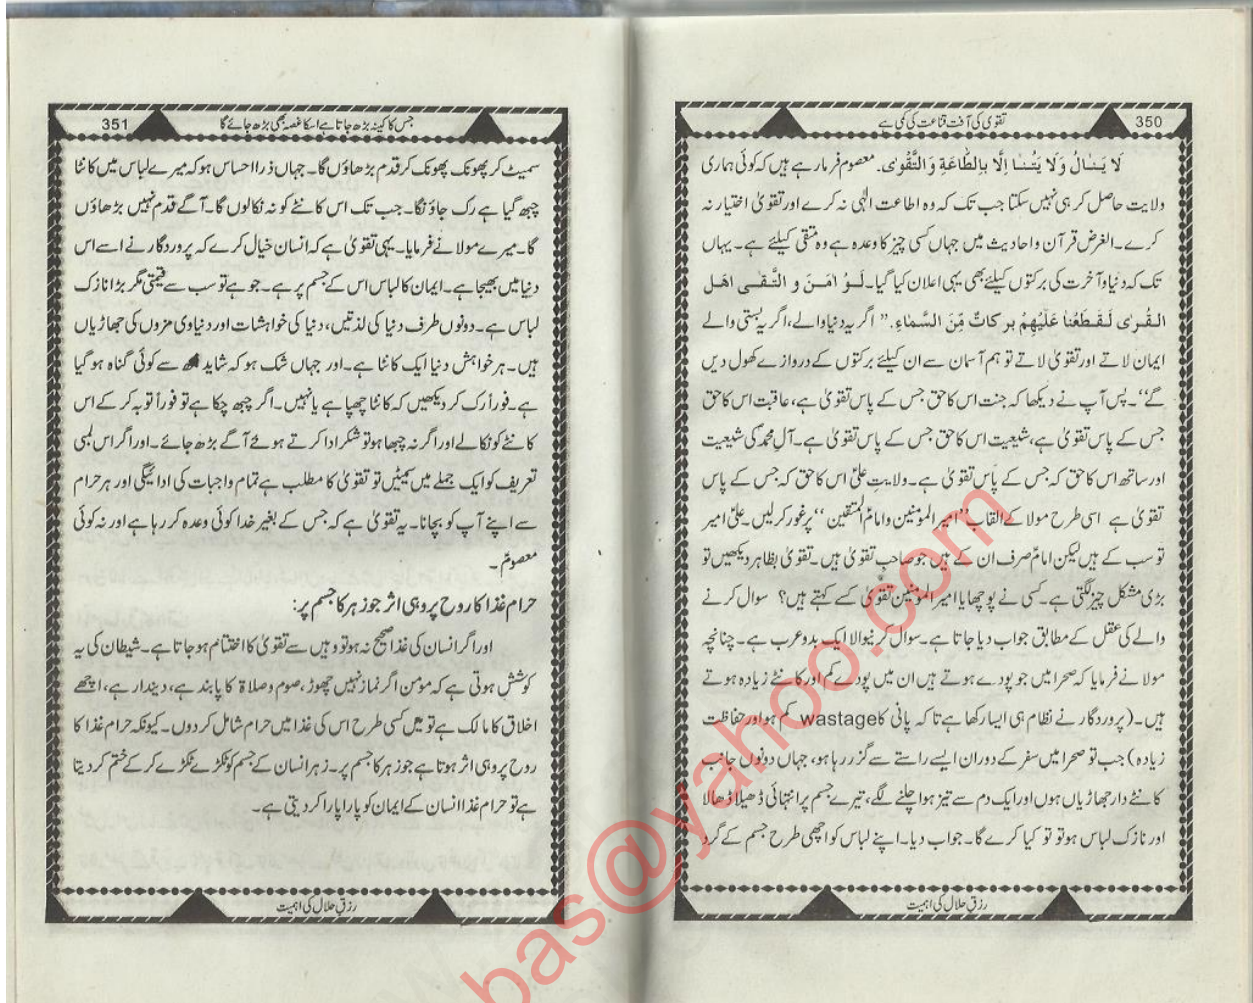 350
تقویٰ کی آفت قناعت کی کمی ہے
لَا يَنَالُ وَلَا يَتُنَا اِلَّا بِالطَّاعَةِ وَالتَّقْوٰى. معصوم فرما رہے ہیں کہ کوئی ہماری
ولایت حاصل کر ہی نہیں سکتا جب تک کہ وہ اطاعت الٰہی نہ کرے اور تقویٰ اختیار نہ
کرے۔ الغرض قرآن و احادیث میں جہاں کسی چیز کا وعدہ ہے وہ متقی کیلئے ہے۔ یہاں
تک کہ دنیا و آخرت کی برکتوں کیلئے بھی یہی اعلان کیا گیا۔ لَوْ امَنَ و التَّقٰى اهل
القُرٰى لَقَطَعْنا عَلَيْهِمْ بركاتٌ مِّنَ السَّماءِ. ” اگر یہ دنیا والے، اگر یہ بستی والے
ایمان لاتے اور تقویٰ لاتے تو ہم آسمان سے ان کیلئے برکتوں کے دروازے کھول دیں
گے‘‘۔ پس آپ نے دیکھا کہ جنت اس کا حق جس کے پاس تقویٰ ہے، عاقبت اس کا حق
جس کے پاس تقویٰ ہے، شیعیت اس کا حق جس کے پاس تقویٰ ہے۔ آلِ محمدؐ کی شیعیت
اور ساتھ اس کا حق کہ جس کے پاس تقویٰ ہے۔ ولایتِ علیؑ اس کا حق کہ جس کے پاس
تقویٰ ہے اسی طرح مولا کے القاب ’’امیر المومنین و امامُ المتقین‘‘ پر غور کرلیں۔ علیؑ امیر
تو سب کے ہیں لیکن امامؑ صرف ان کے ہیں جو صاحبِ تقویٰ ہیں۔ تقویٰ بظاہر دیکھیں تو
بڑی مشکل چیز لگتی ہے۔ کسی نے پوچھا یا امیر المومنین تقویٰ کسے کہتے ہیں؟ سوال کرنے
والے کی عقل کے مطابق جواب دیا جاتا ہے۔ سوال کرنیوالا ایک بدو عرب ہے۔ چنانچہ
مولا نے فرمایا کہ صحرا میں جو پودے ہوتے ہیں ان میں پودے کم اور کانٹے زیادہ ہوتے
ہیں۔ (پروردگار نے نظام ہی ایسا رکھا ہے تاکہ پانی کا wastage کم ہو اور حفاظت
زیادہ) جب تو صحرا میں سفر کے دوران ایسے راستے سے گزر رہا ہو، جہاں دونوں جانب
کانٹے دار جھاڑیاں ہوں اور ایک دم سے تیز ہوا چلنے لگے، تیرے جسم پر انتہائی ڈھیلا ڈھالا
اور نازک لباس ہو تو تو کیا کرے گا۔ جواب دیا۔ اپنے لباس کو اچھی طرح جسم کے گرد
رزقِ حلال کی اہمیت
351
جس کا کینہ بڑھ جاتا ہے اسکا غصہ بھی بڑھ جائے گا
سمیٹ کر پھونک پھونک کر قدم بڑھاؤں گا۔ جہاں ذرا احساس ہو کہ میرے لباس میں کانٹا
چبھ گیا ہے رک جاؤنگا۔ جب تک اس کانٹے کو نہ نکالوں گا۔ آگے قدم نہیں بڑھاؤں
گا۔ میرے مولا نے فرمایا۔ یہی تقویٰ ہے کہ انسان خیال کرے کہ پروردگار نے اسے اس
دنیا میں بھیجا ہے۔ ایمان کا لباس اس کے جسم پر ہے۔ جو ہے تو سب سے قیمتی مگر بڑا نازک
لباس ہے۔ دونوں طرف دنیا کی لذتیں، دنیا کی خواہشات اور دنیاوی مزوں کی جھاڑیاں
ہیں۔ ہر خواہش دنیا ایک کانٹا ہے۔ اور جہاں شک ہو کہ شاید سے کوئی گناہ ہوگیا
ہے۔ فوراً رک کر دیکھیں کہ کانٹا چھپا ہے یا نہیں۔ اگر چبھ چکا ہے تو فوراً توبہ کر کے اس
کانٹے کو نکالے اور اگر نہ چبھا ہو تو شکر ادا کرتے ہوئے آگے بڑھ جائے۔ اور اگر اس لمبی
تعریف کو ایک جملے میں سمیٹیں تو تقویٰ کا مطلب ہے تمام واجبات کی ادائیگی اور ہر حرام
سے اپنے آپ کو بچانا۔ یہ تقویٰ ہے کہ جس کے بغیر خدا کوئی وعدہ کر رہا ہے اور نہ کوئی
معصومؑ۔
حرام غذا کا روح پر وہی اثر جو زہر کا جسم پر:
اور اگر انسان کی غذا صحیح نہ ہو تو وہیں سے تقویٰ کا اختتام ہو جاتا ہے۔ شیطان کی یہ
کوشش ہوتی ہے کہ مومن اگر نماز نہیں چھوڑ، صوم و صلاۃ کا پابند ہے، دیندار ہے، اچھے
اخلاق کا مالک ہے تو میں کسی طرح اس کی غذا میں حرام شامل کر دوں۔ کیونکہ حرام غذا کا
روح پر وہی اثر ہوتا ہے جو زہر کا جسم پر۔ زہر انسان کے جسم کو ٹکڑے ٹکڑے کر کے ختم کر دیتا
ہے تو حرام غذا انسان کے ایمان کو پارا پارا کر دیتی ہے۔
رزقِ حلال کی اہمیت
bas@yahoo.com